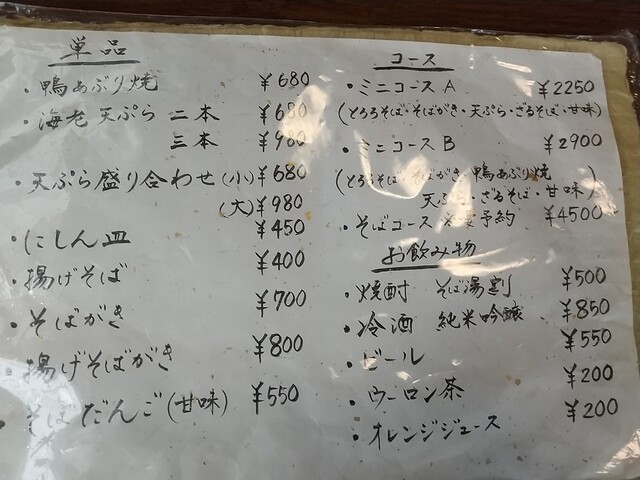 単品
・鴨あぶり焼 ¥680
・海老天ぷら 二本 ¥680
三本 ¥980
・天ぷら盛り合わせ(小) ¥680
(大) ¥980
・にしん皿 ¥450
・揚げそば ¥400
・そばがき ¥700
・揚げそばがき ¥800
・そばだんご(甘味) ¥550
コース
・ミニコースA ¥2250
(とろろそば・そばがき・天ぷら・ざるそば・甘味)
・ミニコースB ¥2900
(とろろそば・そばがき・鴨あぶり焼
天ぷら・ざるそば・甘味)
・そばコース 予約 ¥4500
お飲み物
・焼酎 そば湯割 ¥500
・冷酒 純米吟醸 ¥850
・ビール ¥550
・ウーロン茶 ¥200
・オレンジジュース ¥200